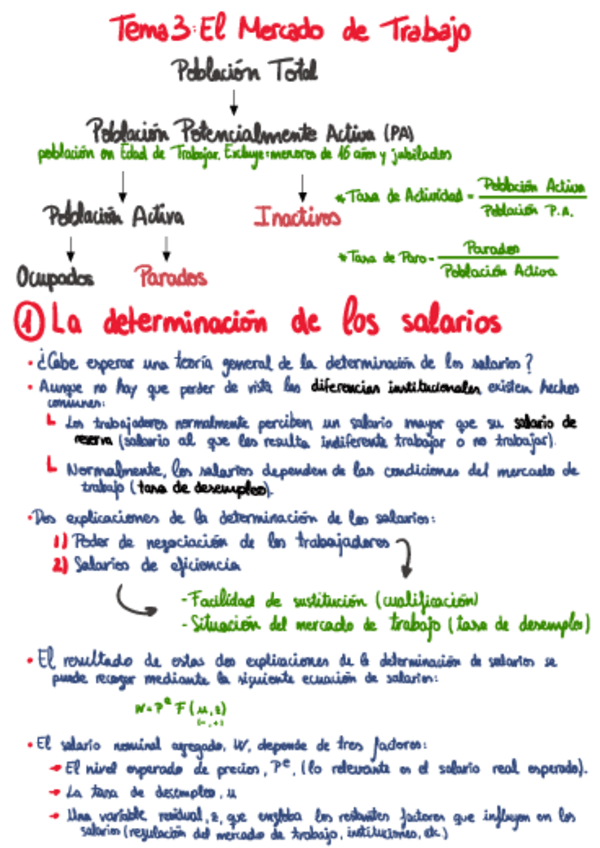 Tema 3: El Mercado de Trabajo
Población Total
Población Potencialmente Activa (PA)
población en Edad de Trabajar. Excluye: menores de 16 años y jubilados
* Tasa de Actividad = Población Activa / Población P.A.
Población Activa Inactivos
* Tasa de Paro = Parados / Población Activa
Ocupados Parados
① La determinación de los salarios
• ¿Cabe esperar una teoría general de la determinación de los salarios?
• Aunque no hay que perder de vista las diferencias institucionales existen hechos
comunes:
Los trabajadores normalmente perciben un salario mayor que su salario de
reserva (salario al que les resulta indiferente trabajar o no trabajar).
Normalmente, los salarios dependen de las condiciones del mercado de
trabajo (tasa de desempleo).
• Dos explicaciones de la determinación de los salarios:
1) Poder de negociación de los trabajadores
2) Salarios de eficiencia
- Facilidad de sustitución (cualificación)
- Situación del mercado de trabajo (tasa de desempleo)
• El resultado de estas dos explicaciones de la determinación de salarios se
puede recoger mediante la siguiente ecuación de salarios:
W = Pᵉ F (u, z)
(-, +)
• El salario nominal agregado, W, depende de tres factores:
→ El nivel esperado de precios, Pᵉ, (lo relevante es el salario real esperado).
→ La tasa de desempleo, u
→ Una variable residual, z, que engloba los restantes factores que influyen en los
salarios (regulación del mercado de trabajo, instituciones, etc.)